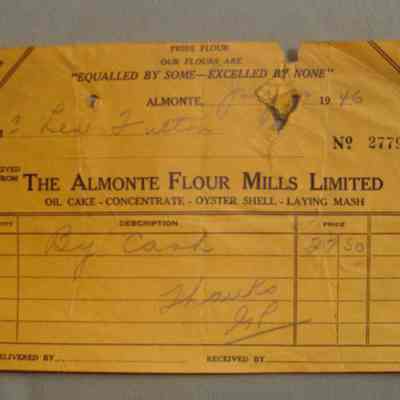 PRIDE FLOUR
OUR FLOURS ARE
"EQUALLED BY SOME—EXCELLED BY NONE"
ALMONTE, 1946
Lew Fulton
Nº 2779
FROM THE ALMONTE FLOUR MILLS LIMITED
OIL CAKE - CONCENTRATE - OYSTER SHELL - LAYING MASH
DESCRIPTION PRICE
By Cash 27 50
Thanks
ELIVERED BY RECEIVED BY